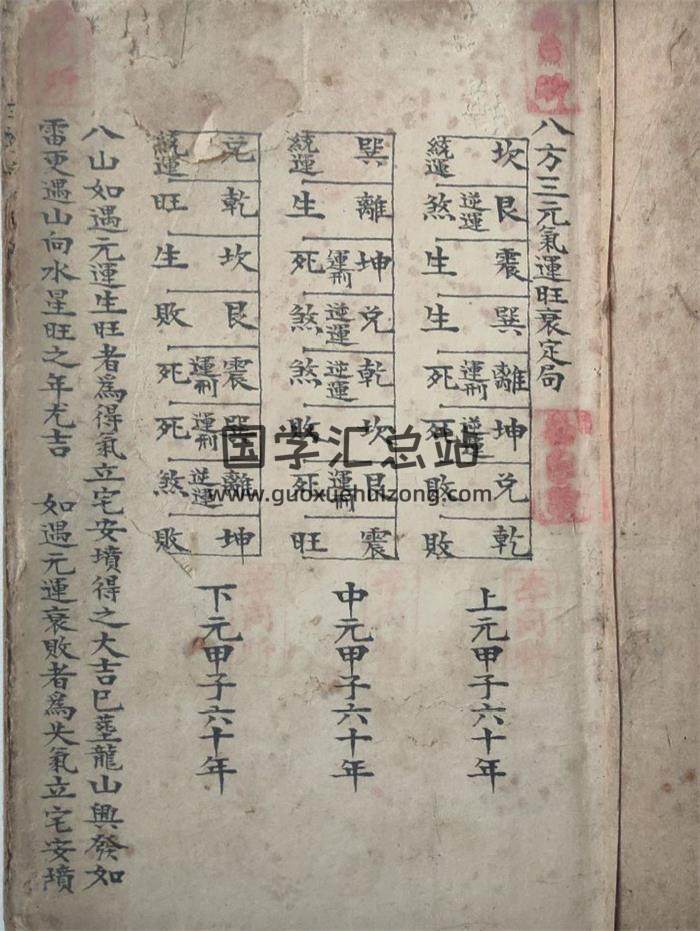 八方三元氣運旺衰定局
坎 統運
艮 逆運 煞
震 生
巽 生
離 運刑 死
坤 逆運 死
兌 敗
乾 敗
上元甲子六十年
巽 統運
離 生
坤 運刑 死
兌 逆運 煞
乾 逆運 煞
坎 敗
艮 運刑 死
震 旺
中元甲子六十年
兌 統運
乾 旺
坎 生
艮 敗
震 運刑 死
巽 運刑 死
離 逆運 煞
坤 敗
下元甲子六十年
八山如遇元運生旺者為得氣立宅安墳得之大吉巳塟龍山興發如
雷更遇山向水星旺之年尤吉 如遇元運衰敗者為失氣立宅安墳
国学汇总站
www.guoxuehuizong.com